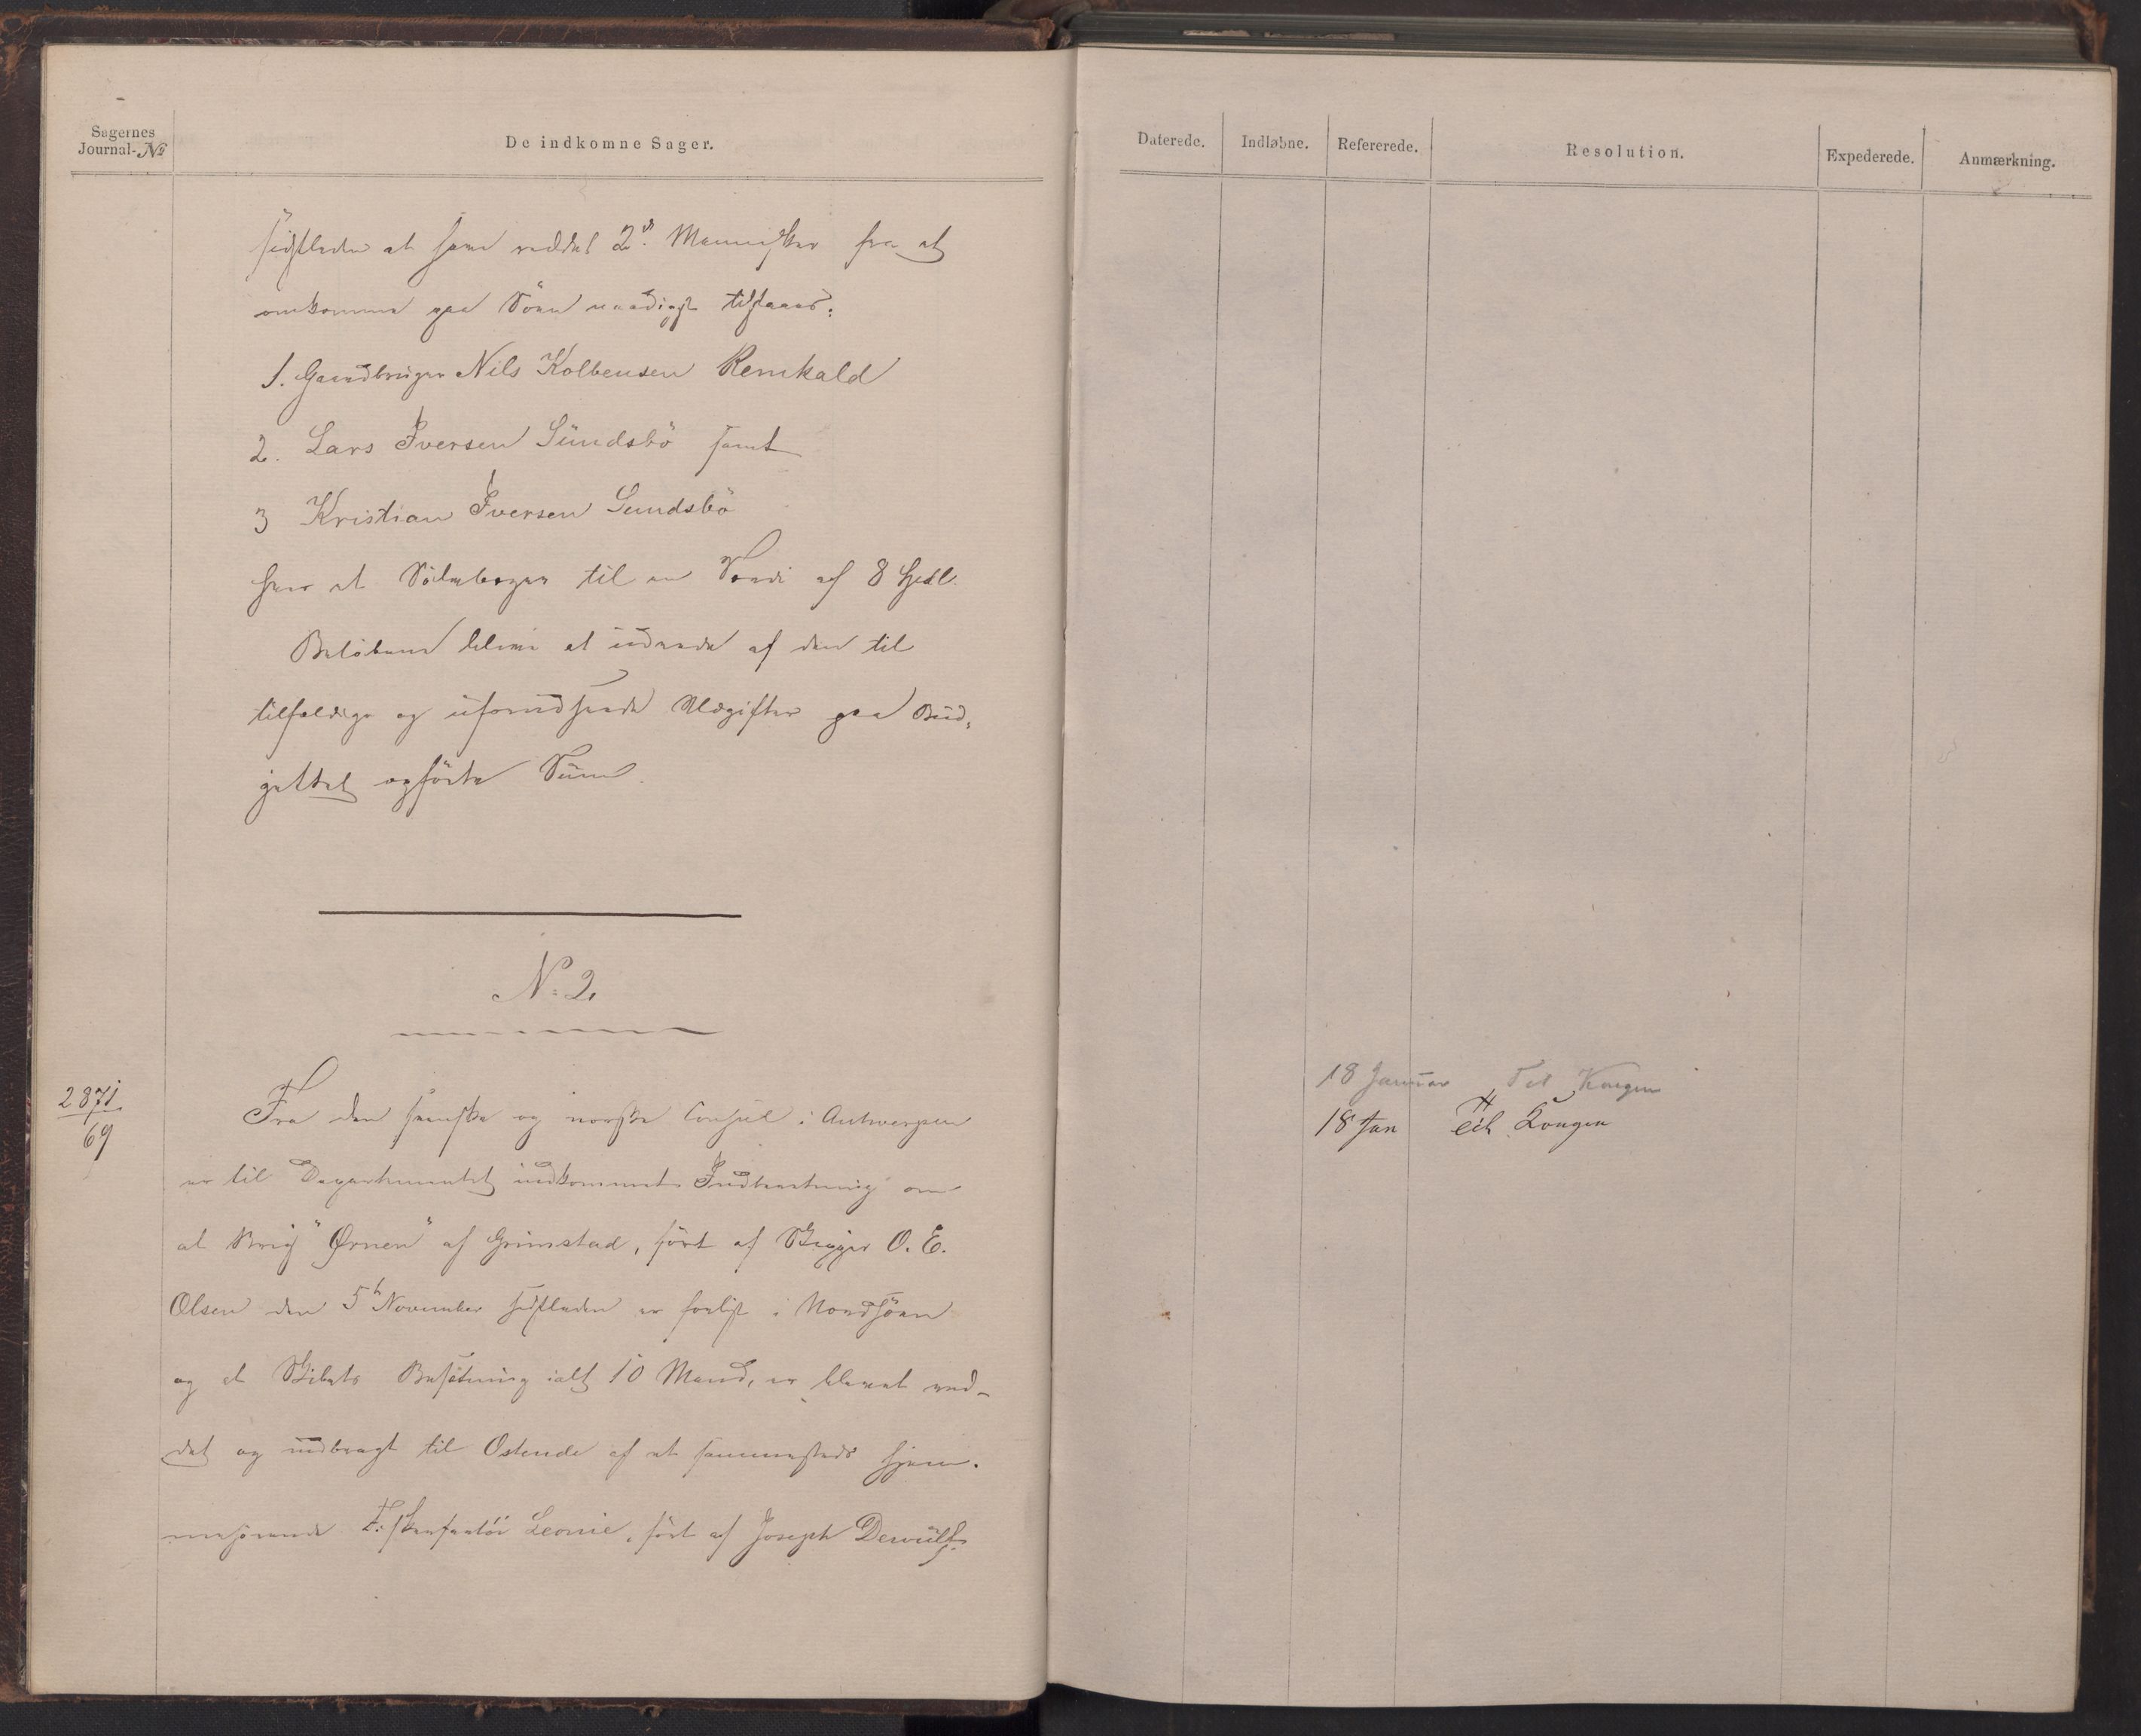 Sagernes
Journal-No
De indkomne Sager.
sidstleden at have reddet 2de Mennesker fra at
omkomme paa Søen naadigst tilstaaes:
1. Gaardbruger Nils Kolbensen Remkald
2. Lars Iversen Sundsbö samt
3 Kristian Iversen Sundsbö
hver et Sölvbæger til en Værdi af 8 Spdl.
Belöbene blive at udrede af den til
tilfældige og uforudseede Udgifter paa Bud-
gettet opförte Sum.
No. 2.
2871
69
Fra den svenske og norske Consul i Antwerpen
er til Departementet indkommet Indberetning om
at Brig "Ørnen" af Grimstad, fört af Skipper O. E.
Olsen den 5te November sidstleden er forlist i Nordsöen
og at Skibets Besætning ialt 10 Mand, er blevet red-
det og indbragt til Ostende af et sammesteds hjem-
mehørende Fiskerfartöi Leonie, fört af Joseph Dewulf.
Daterede.
Indløbne.
Refererede.
Resolution.
Expederede.
Anmærkning.
18 Januar Til Kongen
18 Jan Til Kongen